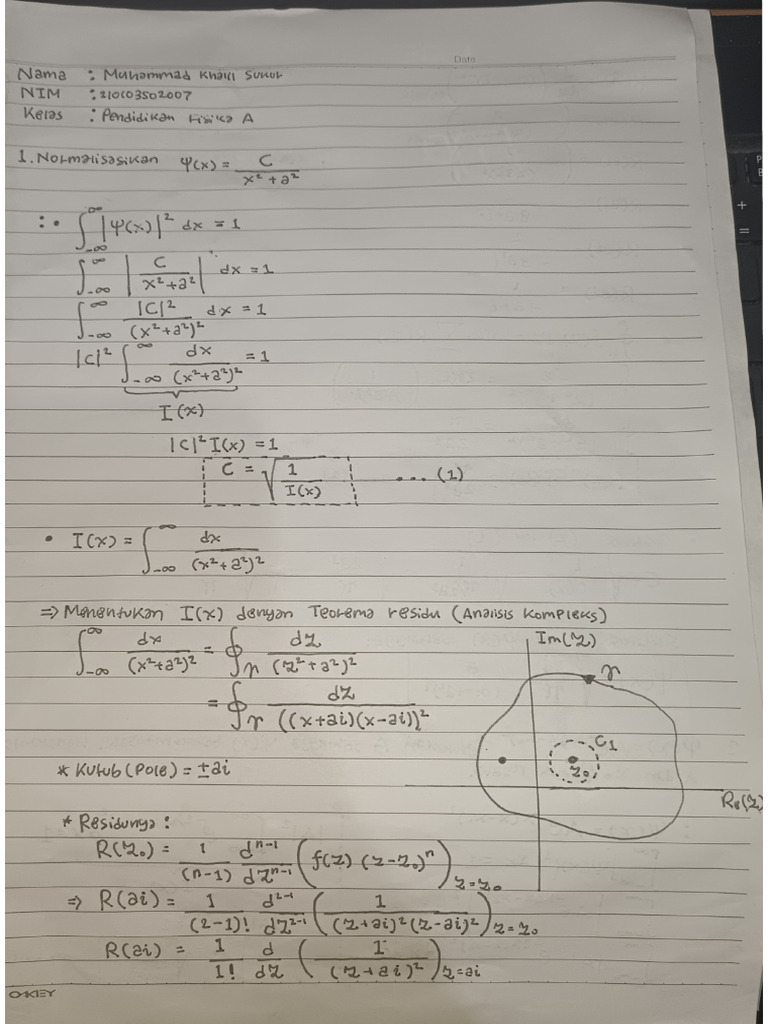 Date
Nama : Muhammad Khalil Sukur
NIM : 210103502007
Kelas : Pendidikan Fisika A
1. Normalisasikan ψ(x) = C / (x² + a²)
∴ • ∫_{-∞}^{∞} |ψ(x)|² dx = 1
∫_{-∞}^{∞} |C / (x² + a²)| dx = 1
∫_{-∞}^{∞} |C|² / (x² + a²)² dx = 1
|C|² ∫_{-∞}^{∞} dx / (x² + a²)² = 1
I(x)
|C|² I(x) = 1
C = √(1 / I(x)) ... (1)
• I(x) = ∫_{-∞}^{∞} dx / (x² + a²)²
⇒ Menentukan I(x) dengan Teorema residu (Analisis Kompleks)
∫_{-∞}^{∞} dx / (x² + a²)² = ∮_γ dz / (z² + a²)²
= ∮_γ dz / ((x + ai)(x - ai))²
Im(z)
γ
C₁
z₀
Re(z)
* Kutub (Pole) = ±ai
* Residunya :
R(z₀) = 1 / (n-1) d^{n-1} / dz^{n-1} (f(z) (z - z₀)^n)_{z = z₀}
⇒ R(ai) = 1 / (2-1)! d^{2-1} / dz^{2-1} (1 / (z + ai)² (z - ai)²)_{z = z₀}
R(ai) = 1 / 1! d / dz (1 / (z + ai)²)_{z = ai}
OAKLEY
+
=
P